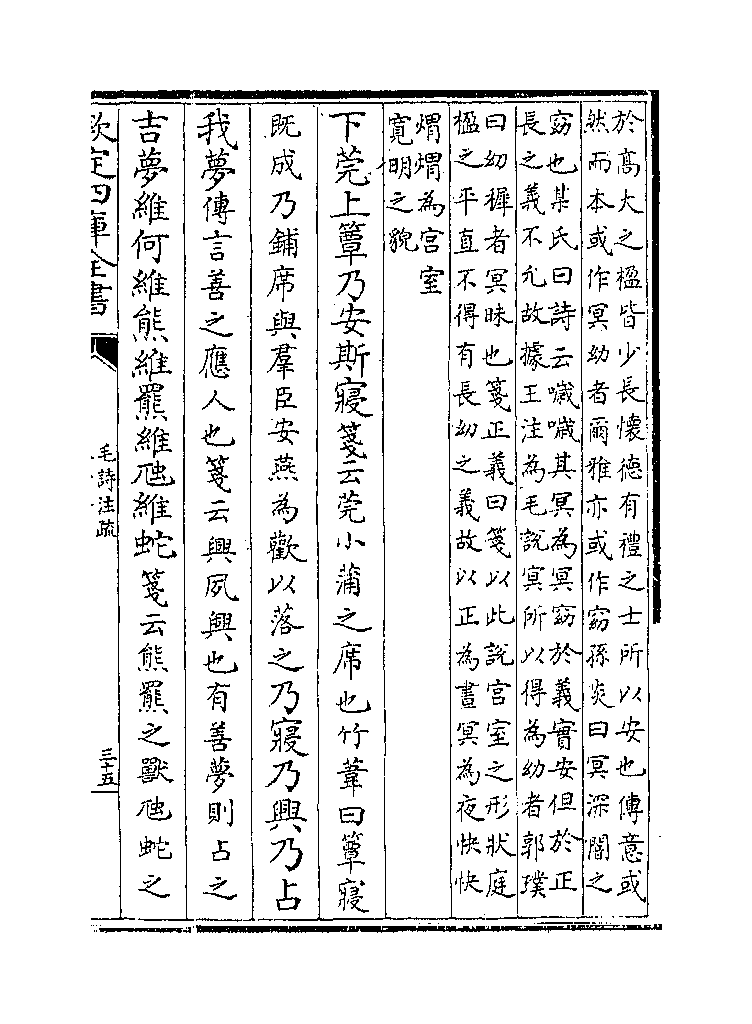 於高大之楹皆少長懷德有禮之士所以安也傳意或
然而本或作冥幼者爾雅亦或作窈孫炎曰冥深闇之
窈也某氏曰詩云噦噦其冥為冥窈於義實安但於正
長之義不允故據王注為毛說冥所以得為幼者郭璞
曰幼穉者冥昧也箋正義曰箋以此說宫室之形狀庭
楹之平直不得有長幼之義故以正為晝冥為夜快快
煟煟為宫室
寛明之貌
下莞上簟乃安斯寢箋云莞小蒲之席也竹葦曰簟寢
既成乃鋪席與羣臣安燕為歡以落之乃寢乃興乃占
我夢傳言善之應人也箋云興夙興也有善夢則占之
吉夢維何維熊維羆維虺維蛇箋云熊羆之獸虺蛇之
欽定四庫全書
毛詩注疏
三十五